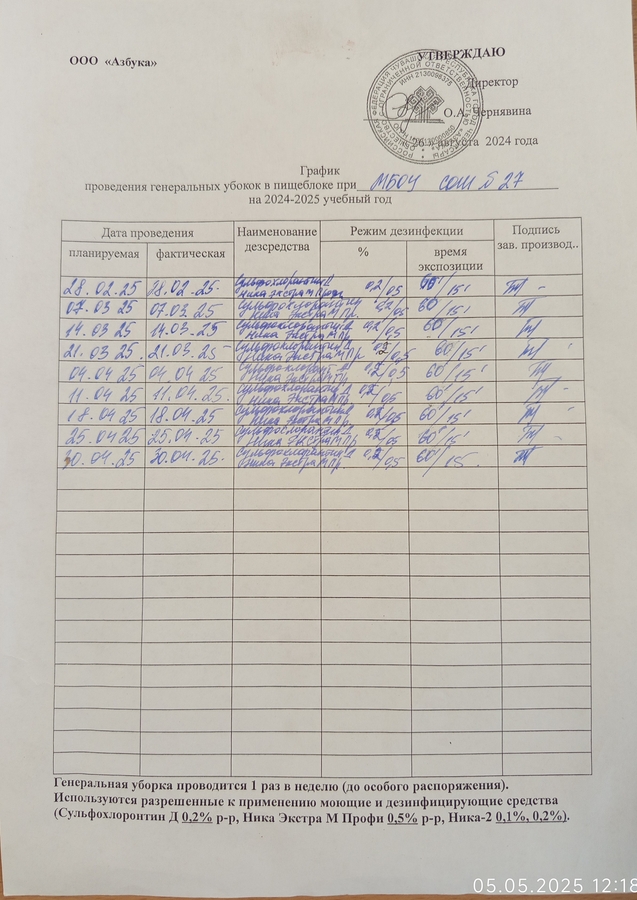 ООО «Азбука»
УТВЕРЖДАЮ
Директор
О.А. Чернявина
26 » августа 2024 года
График
проведения генеральных убокок в пищеблоке при МБОУ СОШ 27
на 2024-2025 учебный год
Дата проведения Наименование дезсредства Режим дезинфекции Подпись зав. производ..
планируемая фактическая % время экспозиции
28.02.25 28.02.25 Сульфохлорантин Д Ника Экстра М Проф 0,2/0,5 60/15'
07.03.25 07.03.25 Сульфохлорантин Д Ника Экстра М Пр. 0,2/0,5 60/15'
14.03.25 14.03.25 Сульфохлорантин Д Ника Экстра М Пр. 0,2/0,5 60/15'
21.03.25 21.03.25 Сульфохлорантин Д Ника Экстра М Пр. 0,2/0,5 60/15'
04.04.25 04.04.25 Сульфохлорант Д Ника Экстра М Пр. 0,2/0,5 60/15'
11.04.25 11.04.25 Сульфохлорантин Д Ника Экстра М Пр 0,2/0,5 60/15'
18.04.25 18.04.25 Сульфохлорантин Д Ника Экстра М Пр. 0,2/0,5 60/15'
25.04.25 25.04.25 Сульфохлорантин Д Ника Экстра М Пр 0,2/0,5 60/15'
30.04.25 30.04.25 Сульфохлорантин Д Ника Экстра М Пр. 0,2/0,5 60/15
Генеральная уборка проводится 1 раз в неделю (до особого распоряжения).
Используются разрешенные к применению моющие и дезинфицирующие средства
(Сульфохлоронтин Д 0,2% р-р, Ника Экстра М Профи 0,5% р-р, Ника-2 0,1%, 0,2%).
05.05.2025 12:18